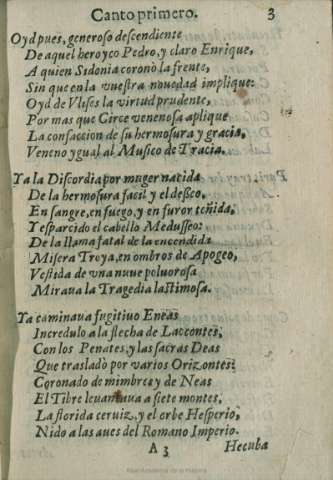 Canto primero. 3
Oyd pues, generoso descendiente
De aquel heroyco Pedro, y claro Enrique,
A quien Sidonia coronò la frente,
Sin que en la vuestra nouedad implique:
Oyd de Vlises la virtud prudente,
Por mas que Circe venenosa aplique
La confaccion de su hermosura y gracia,
Veneno ygual al Musico de Tracia.
Ya la Discordia por muger nacida
De la hermosura facil y el desseo,
En sangre, en fuego, y en furor teñida,
Y esparcido el cabello Medusseo:
De la llama fatal de la encendida
Misera Troya, en ombros de Apogeo,
Vestida de vna nuue poluorosa
Miraua la Tragedia lastimosa.
Ya caminaua fugitiuo Eneas
Incredulo a la flecha de Laocontes,
Con los Penates, y las sacras Deas
Que trasladò por varios Orizontes:
Coronado de mimbres y de Neas
El Tibre leuantaua a siete montes,
La florida ceruiz, y el orbe Hesperio,
Nido a las aues del Romano Imperio.
A 3 Hecuba